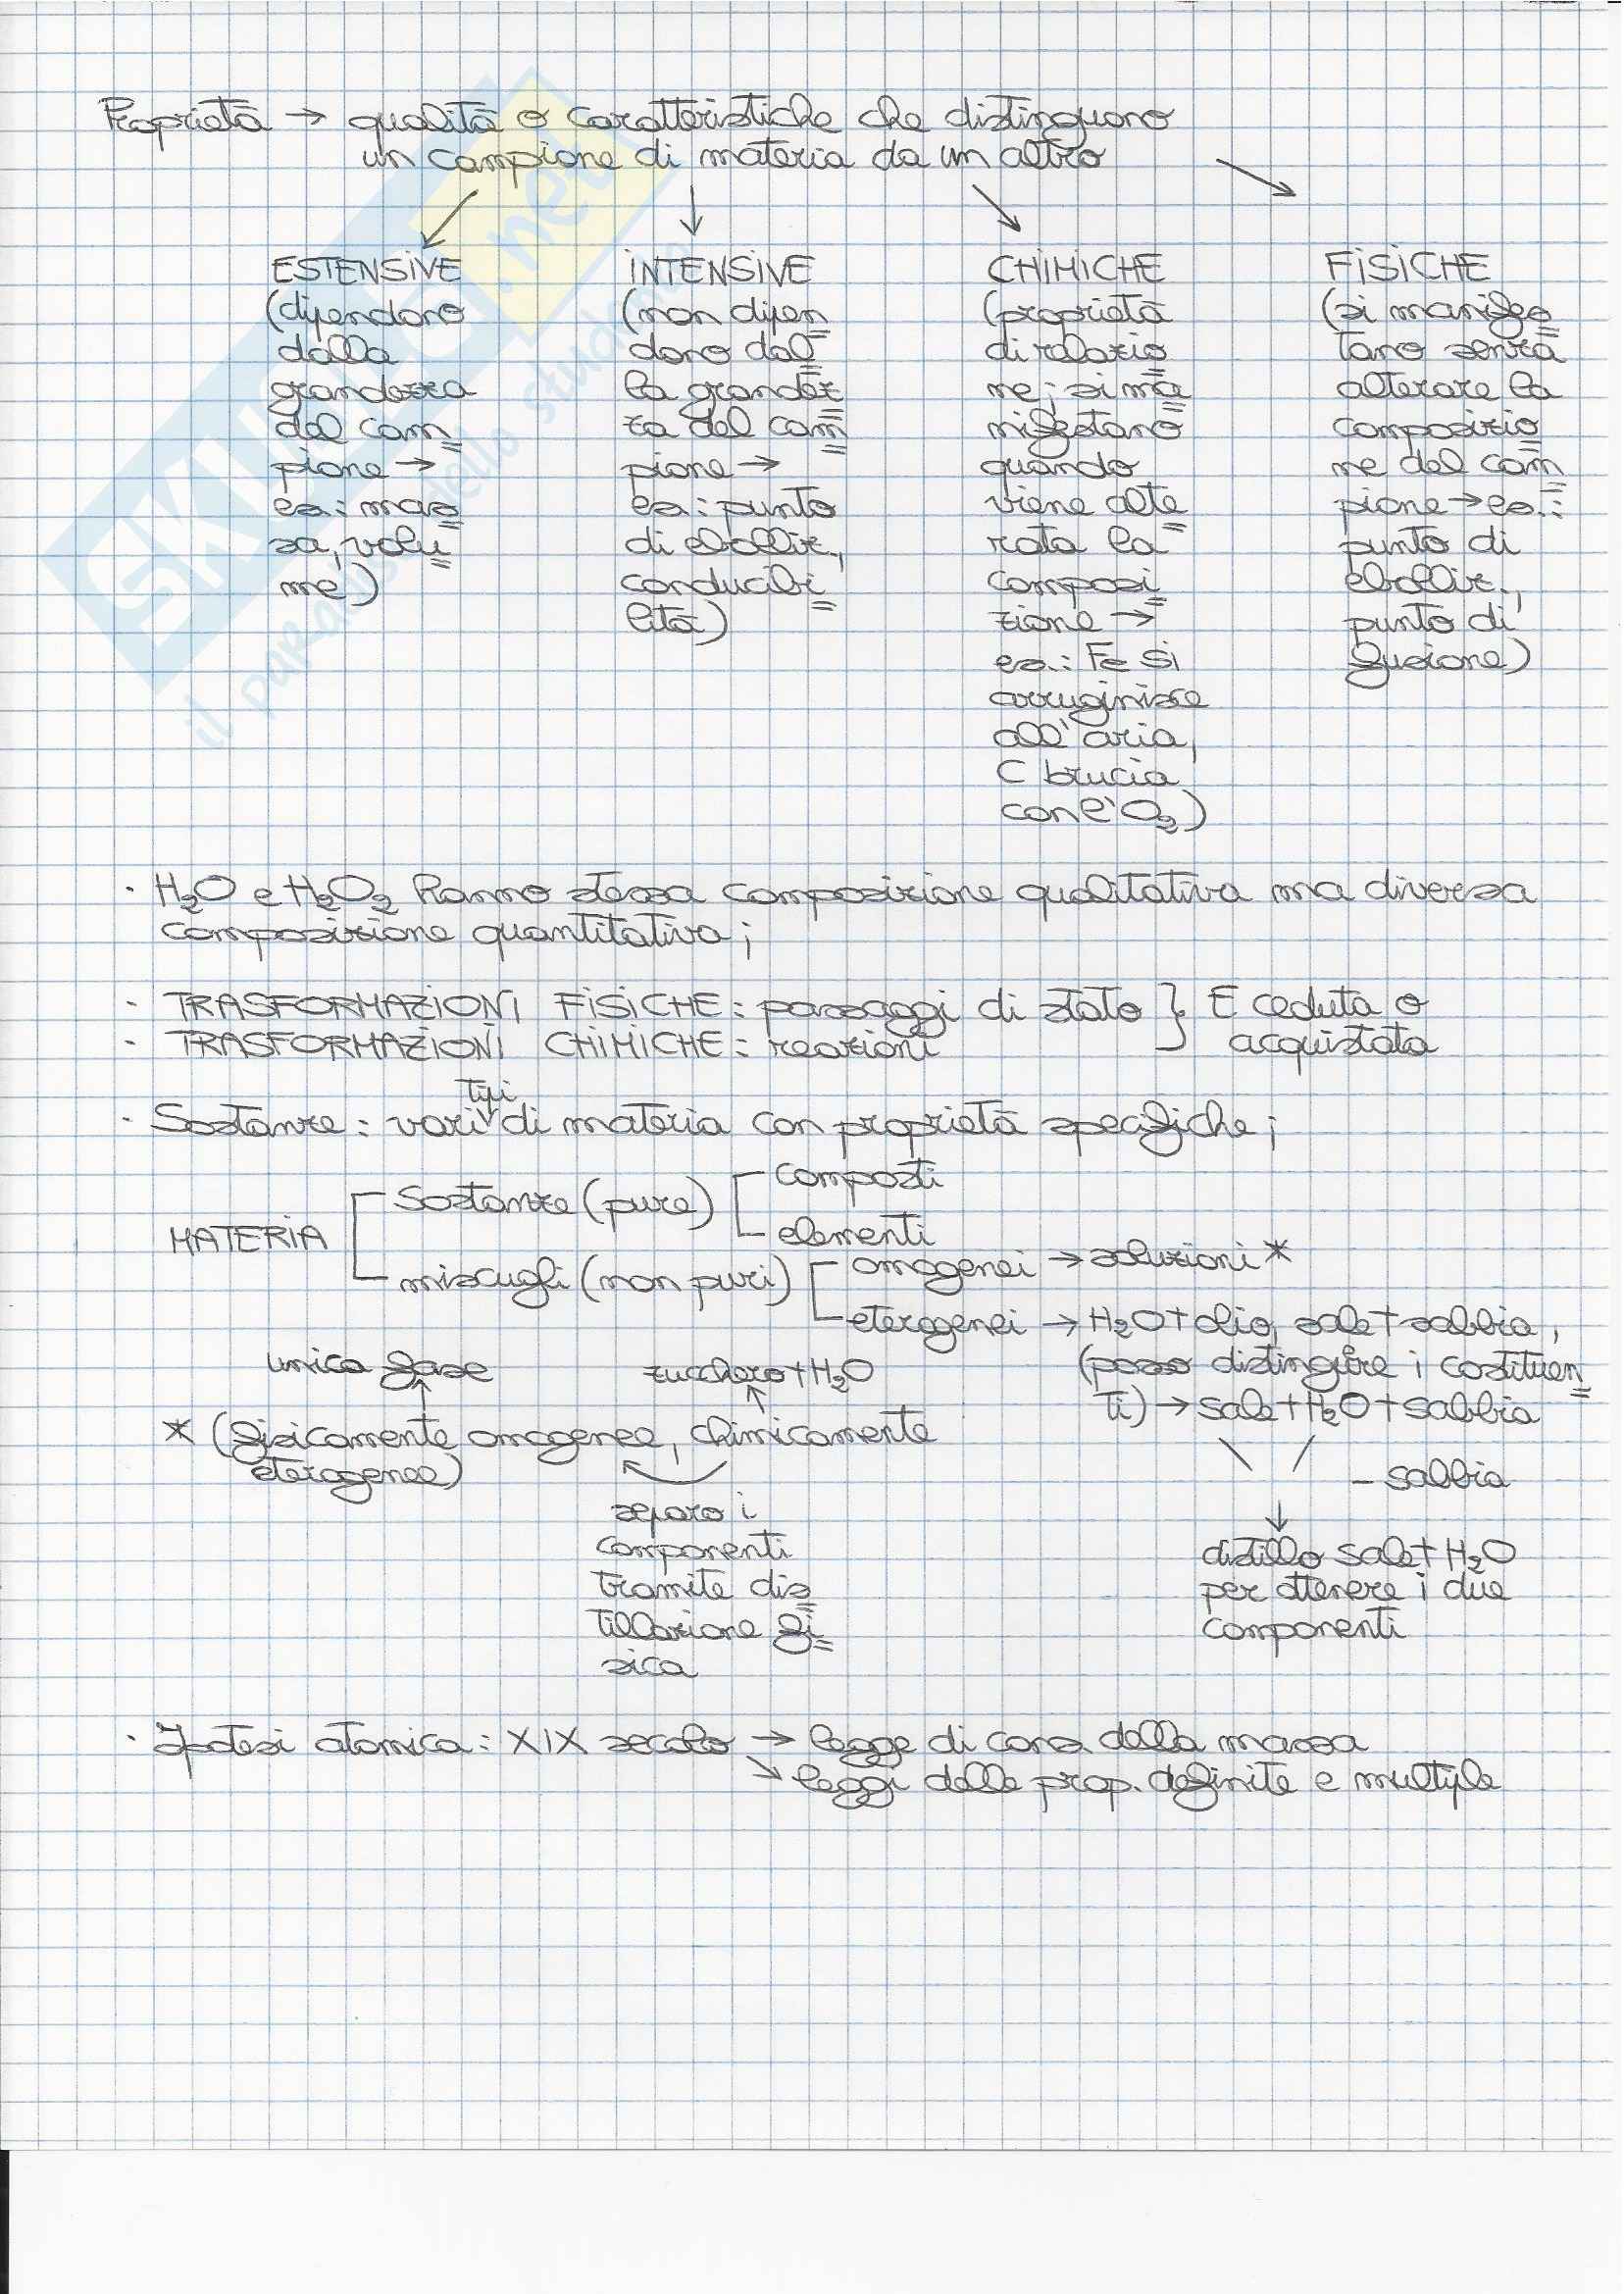 Proprietà → qualità o caratteristiche che distinguono
un campione di materia da un altro
ESTENSIVE
(dipendono
dalla
grandezza
del cam
pione →
es.: mas
sa, volu
me)
INTENSIVE
(non dipen
dono dal
la grandez
za del cam
pione →
es.: punto
di ebolliz.,
conducibi
lità)
CHIMICHE
(proprietà
di relazio
ne; si ma
nifestano
quando
viene alte
rata la
composi
zione →
es.: Fe si
arruginisce
all'aria,
C brucia
con l'O₂)
FISICHE
(si manifes
tano senza
alterare la
composizio
ne del cam
pione → es.:
punto di
ebolliz.,
punto di
fusione)
· H₂O e H₂O₂ hanno stessa composizione qualitativa ma diversa
composizione quantitativa;
· TRASFORMAZIONI FISICHE: passaggi di stato } E ceduta o
· TRASFORMAZIONI CHIMICHE: reazioni acquistata
tipi
· Sostanze: vari di materia con proprietà specifiche;
MATERIA
Sostanze (pure)
composti
elementi
miscugli (non puri)
omogenei → soluzioni *
eterogenei → H₂O + olio, sale + sabbia,
(posso distinguere i costituen
ti) → sale + H₂O + sabbia
- sabbia
distillo sale + H₂O
per ottenere i due
componenti
unica fase
zucchero + H₂O
* (fisicamente omogenee, chimicamente
eterogenee)
separo i
componenti
tramite dis
tillazione fi
sica
· Ipotesi atomica: XIX secolo → legge di cons. della massa
↘ leggi delle prop. definite e multiple
SKUOLA.net
il paradiso dello studente